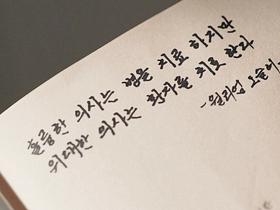 훌륭한 의사는 병을 치료 하지만
위대한 의사는 환자를 치료 한다
-윌리엄 오슬러-